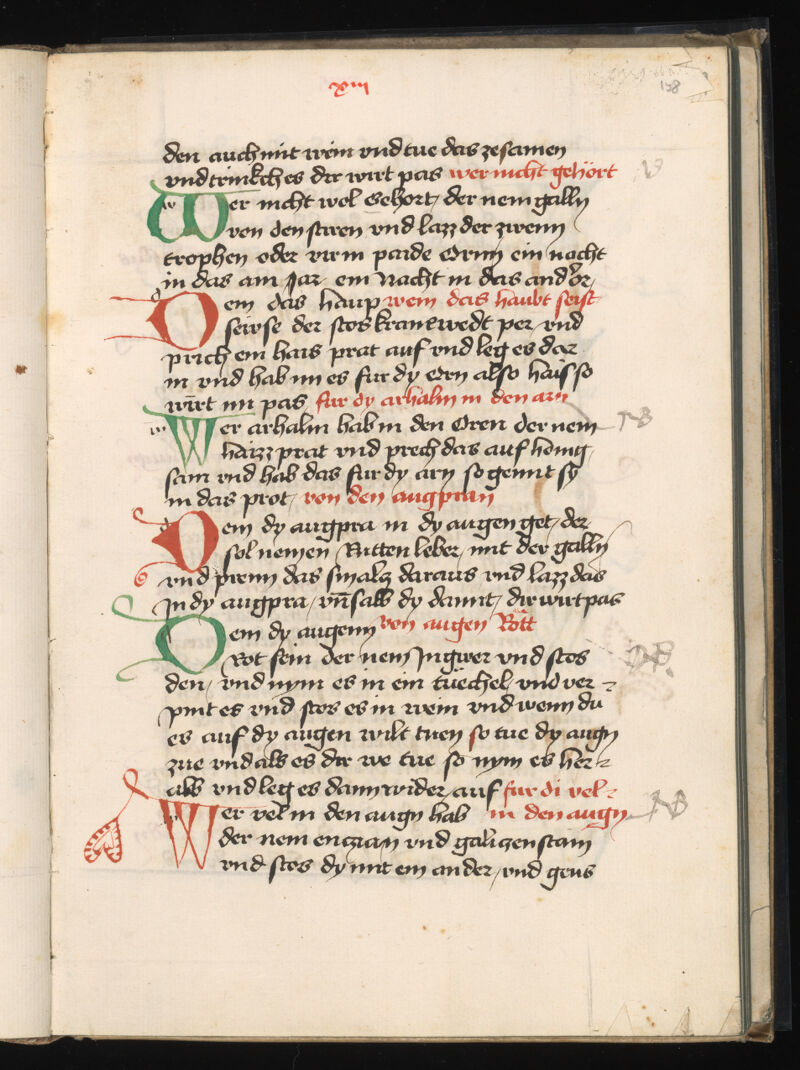 xiii
138
den auch mit wein vnd tue das zesamen
vnd trinkch es dir wirt pas wer nicht gehört
Wer nicht wol gehort, der nem gallῆ
von den stiren vnd lazz der zwenn
trophen oder vir in paide Ornn ein nacht
in das ain Jar, ein Nacht in das ander,
Dem das haup wem das haubt seist
sewse der stos kranewedt per, vnd
prich ein hais prat auf vnd leg es dar
in vnd hab im es fur dy Orn also haisso
wirt im pas fur dy arhaln in den arn
Wer arhaln hab in den Oren der nem
haizz prat vnd prech das auf honig,
sam vnd hab das fur dy arn so gennt sy
in das prot, von den augpran
Dem dy augpra in dy augen get, der
sol nemen Rutten leber, mit der gallῆ
vnd prenn das smalcz daraus vnd lazz das
In dy augpra, vnd salb dy damit, dir wirt pas
Dem dy augenn von augen Rött
Rot sein der nem Ingwer vnd stos
den, vnd nym es in ein tüechel, vnd ver
pint es vnd stos es in wein vnd wenn du
es auf dy augen wilt tuen so tue dy augn
zue vnd als es dir we tue so nym es her
ab vnd leg es dann wider auf fur di vel
Wer vel in den augn hab in den augn
der nem enczian vnd galiczenstain
vnd stos dy mit ein ander, vnd geus